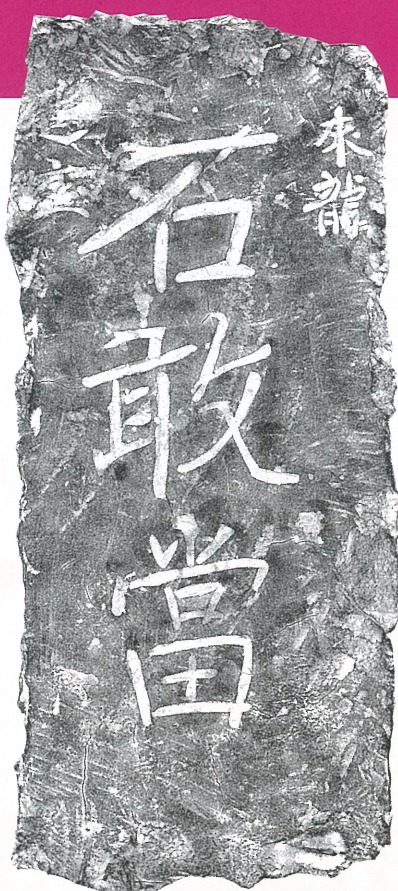 來龍
石敢當